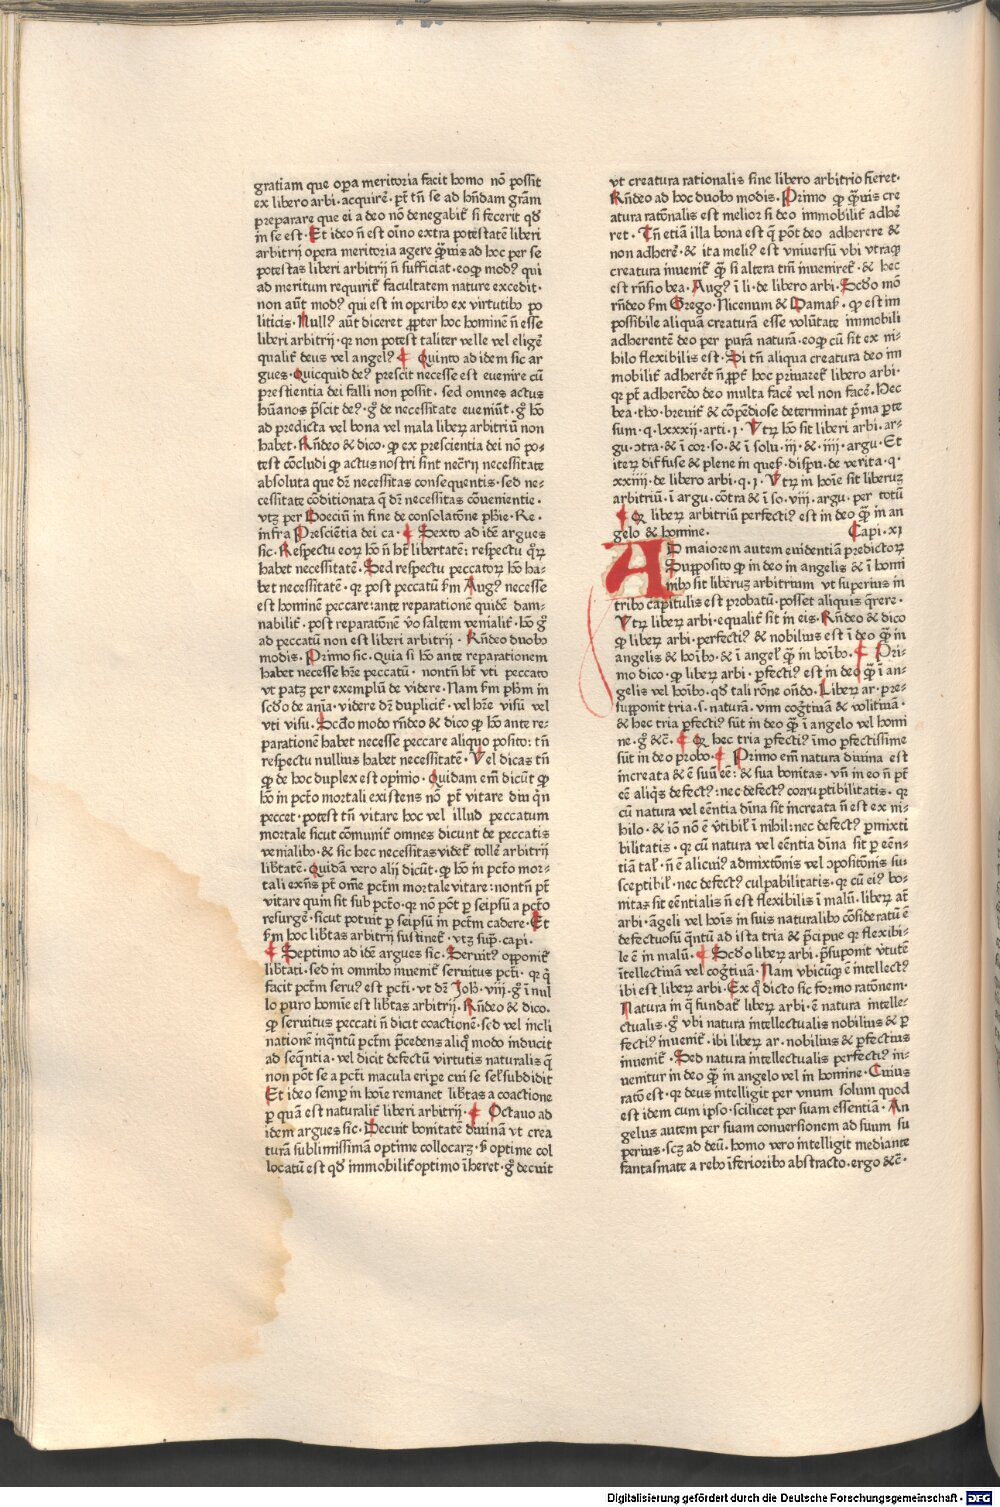 gratiam que oꝑa meritoria facit homo nō possit
ex libero arbi. acquirē. pt̄ tn̄ se ad hn̄dam grām
preparare que ei a deo nō denegabit̄ si fecerit qđ
in se est. Et ideo n̄ est oīno extra potestatē liberi
arbitrij opera meritoria agere qͣ̄uis ad hoc per se
potestas liberi arbitrij n̄ sufficiat. eoqꝫ modꝰ qui
ad meritum requirit̄ facultatem nature excedit.
non aūt modꝰ qui est in operibꝫ ex virtutibꝫ po
liticis. Nullꝰ aūt diceret ꝓpter hoc hominē n̄ esse
liberi arbitrij. qꝛ non potest taliter velle vel eligē
qualit̄ deus vel angelꝰ ¶ Quinto ad idem sic ar
gues. Quicquid deꝰ prescit necesse est euenire cū
prestientia dei falli non possit. sed omnes actus
hūanos p̄scit deꝰ. gͦ de necessitate eueniūt. gͦ hō
ad predicta vel bona vel mala liberꝫ arbitriū non
habet. Rn̄deo & dico. ꝙ ex prescientia dei nō po-
test cōcludi ꝙ actus nostri sint nec̄rij necessitate
absoluta que dr̄ necessitas consequentis. sed ne-
cessitate cōditionata q̄ dr̄ necessitas cōuenientie.
vtꝫ per Boeciū in fine de consolatōne ph̄ie. Re.
infra Presciētia dei ca. ¶ Sexto ad idē argues
sic. Respectu eoꝝ hō n̄ hꝫ libertatē: respectu qͦꝝ
habet necessitatē. Sed respectu peccatoꝝ hō ha-
bet necessitatē. qꝛ post peccatū ẜm Augꝰ necesse
est hominē peccare: ante reparationē quidē dam-
nabilit̄. post reparatōnē v̄o saltem venialit̄. hō gͦ
ad peccatū non est liberi arbitrij. Rn̄deo duobꝫ
modis. Primo sic. Quia si hō ante reparationem
habet necesse hr̄e peccatū. nontn̄ hꝫ vti peccato
vt patꝫ per exemplū de videre. Nam ẜm ph̄m in
scđo de aīa. videre dr̄ duplicit̄. vel hr̄e visū vel
vti visu. Scđo modo rn̄deo & dico ꝙ hō ante re-
parationē habet necesse peccare aliquo posito: tn̄
respectu nullius habet necessitatē. Vel dicas tn̄
ꝙ de hoc duplex est opinio. Quidam em̄ dicūt ꝙ
hō in pctō mortali existens nō pt̄ vitare diu qͥn
peccet. potest tn̄ vitare hoc vel illud peccatum
mortale sicut cōmunit̄ omnes dicunt de peccatis
venialibꝫ. & sic hec necessitas videt̄ tollē arbitrij
lib̄tatē. Quidā vero alij dicūt. ꝙ hō in pctō mor-
tali exn̄s pt̄ om̄e pctm̄ mortale vitare: nontn̄ pt̄
vitare quin sit sub pctō. qꝛ nō pōt ꝑ seipsū a pctō
resurgē. sicut potuit ꝑ seipsū in pctm̄ cadere. Et
ẜm hoc lib̄tas arbitrij sustinet̄. vtꝫ supͣ. capi.
¶ Septimo ad idē argues sic. Seruitꝰ opponit̄
lib̄tati. sed in omnibꝫ inuenit̄ seruitus pcti. qꝛ qͥ
facit pctm̄ seruꝰ est pcti. vt dr̄ Joh̄. viij. gͦ ī nul
lo puro homīe est lib̄tas arbitrij. Rn̄deo & dico.
ꝙ seruitus peccati n̄ dicit coactionē. sed vel incli
nationē inqͣ̄ntū pctm̄ p̄cedens aliqͦ modo inducit
ad seqn̄tia. vel dicit defectū virtutis naturalis q̄
non pōt se a pcti macula eripe cui se sel̄ subdidit
Et ideo semꝑ in hoīe remanet lib̄tas a coactione
ꝑ quā est naturalit̄ liberi arbitrij. ¶ Octauo ad
idem argues sic. Decuit bonitatē diuinā vt crea
turā sublimissimā optime collocarꝫ. sꝫ optime col
locatū est qđ immobilit̄ optimo īheret. gͦ decuit
vt creatura rationalis sine libero arbitrio fieret.
Rn̄deo ad hoc duobꝫ modis. Primo ꝙ qͣ̄uis cre
atura ratōnalis est melior si deo immobilit̄ adhē
ret. Tn̄ etiā illa bona est q̄ pōt deo adherere &
non adherē. & ita meliꝰ est vniuersū vbi vtraqꝫ
creatura inuenit̄ qͣ̄ si altera tm̄ inueniret̄. & hec
est rn̄sio bea. Augꝰ ī li. de libero arbi. Scđo mō
rn̄deo ẜm Grego. Nicenum & Damas̄. ꝙ est im
possibile aliquā creaturā esse volūtate immobili
adherentē deo per purā naturā. eoqꝫ cū sit ex ni-
hilo flexibilis est. Si tn̄ aliqua creatura deo im
mobilit̄ adheret̄ n̄ ꝓpt̄ hoc priuaret̄ libero arbi.
qꝛ pt̄ adherēdo deo multa facē vel non facē. Hec
bea. tho. breuit̄ & cōpēdiose determinat p̄ma ꝑte
sum. q. lxxxij. arti. j. Vtꝝ hō sit liberi arbi. ar-
gu. ꝯtra. & ī cor. so. & ī solu. iij. & iiij. argu. Et
iteꝝ diffuse & plene in ques̄. dispu. de verita. q.
xxiiij. de libero arbi. q. j. Vtꝝ in hoīe sit liberꝫ
arbitriū. ī argu. cōtra & ī so. viij. argu. per totū
¶ Qꝛ liberꝫ arbitriū perfectiꝰ est in deo qͣ̄ in an
gelo & homine. Capi. xj
AD maiorem autem euidentiā predictoꝝ
Supposito ꝙ in deo in angelis & ī homī
nibꝫ sit liberꝫ arbitrium vt superius in
tribꝫ capitulis est probatū. posset aliquis q̄rere.
Vtꝝ liberꝫ arbi. equalit̄ sit in eis. Rn̄deo & dico
ꝙ liberꝫ arbi. perfectiꝰ & nobilius est ī deo qͣ̄ in
angelis & hoībꝫ. & ī angel̄ qͣ̄ in hoībꝫ. ¶ Pri-
mo dico. ꝙ liberꝫ arbi. ꝑfectiꝰ est in deo qͣ̄ ī an-
gelis vel hoībꝫ. qđ tali rōne on̄do. Liberꝫ ar. pre-
supponit tria. s. naturā. vim cogītiuā & volitiuā.
& hec tria ꝑfectiꝰ sūt in deo qͣ̄ ī angelo vel homī
ne. gͦ &c̄. ¶ Qꝛ hec tria ꝑfectiꝰ īmo ꝑfectissime
sūt in deo probo. ¶ Primo em̄ natura diuina est
increata & ē suū eē: & sua bonitas. vn̄ in eo n̄ pt̄
eē aliqͥs defectꝰ: nec defectꝰ corruptibilitatis. qꝛ
cū natura vel eēntia dīna sit increata n̄ est ex ni-
hilo. & iō nō ē v̄tibil̄ ī nihil: nec defectꝰ ꝑmixti
bilitatis. qꝛ cū natura vel eēntia dīna sit ꝑ eēn-
tiā tal̄. n̄ ē alicuiꝰ admixtōnis vel ꝯpositōnis su-
sceptibil̄. nec defectꝰ culpabilitatis. qꝛ cū eiꝰ bo-
nitas sit eēntialis n̄ est flexibilis ī malū. liberꝫ at̄
arbi. āgeli vel hoīs in suis naturalibꝫ cōsideratū ē
defectuosū qͣ̄ntū ad ista tria & p̄cipue qꝛ flexibi-
le ē in malū. ¶ Scđo liberꝫ arbi. p̄suponit v̄tutē
ītellectiuā vel cogītiuā. Nam vbicūqꝫ ē intellectꝰ
ibi est liberꝫ arbi. Ex qͦ dicto sic formo ratōnem.
Natura in qͣ fundat̄ liberꝫ arbi. ē natura intelle-
ctualis. gͦ vbi natura intellectualis nobilius & ꝑ
fectiꝰ inuenit̄. ibi liberꝫ ar. nobilius & ꝑfectius
inuenit̄. Sed natura intellectualis perfectiꝰ in-
uenitur in deo qͣ̄ in angelo vel in homine. Cuius
ratō est. qꝛ deus intelligit per vnum solum quod
est idem cum ipso. scilicet per suam essentiā. An
gelus autem per suam conuersionem ad suum su
perius. scꝫ ad deū. homo vero intelligit mediante
fantasmate a rebꝫ īferioribꝫ abstracto. ergo &c̄.
Digitalisierung gefördert durch die Deutsche Forschungsgemeinschaft - DFG